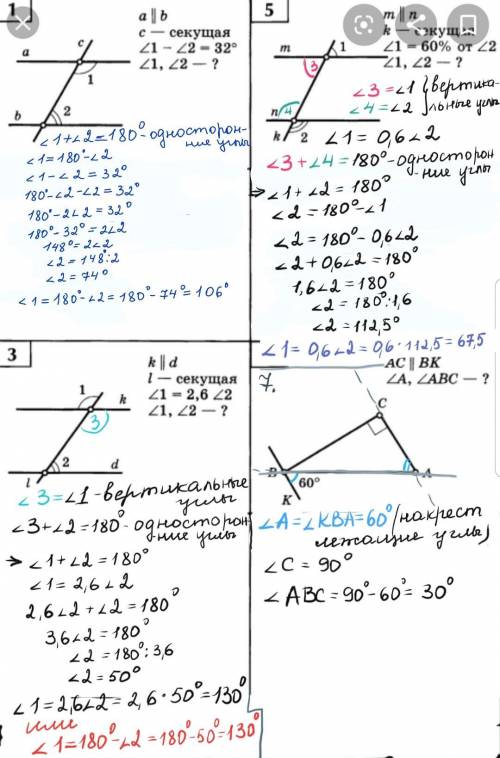 1
a ∥ b
c — секущая
∠1 − ∠2 = 32°
∠1, ∠2 — ?
c
a
1
b
2
∠1+∠2=180° - односторон-
ние углы
∠1=180°-∠2
∠1-∠2=32°
180°-∠2-∠2=32°
180°-2∠2=32°
180°-32°=2∠2
148°=2∠2
∠2=148°:2
∠2=74°
∠1=180°-∠2=180°-74°=106°
5
m ∥ n
k — секущая
∠1 = 60% от ∠2
∠1, ∠2 — ?
m
1
3
n
4
k
2
∠3=∠1 } вертика-
∠4=∠2 } льные углы
∠1=0,6∠2
∠3+∠4=180° - односторон
ние углы
⇒ ∠1+∠2=180°
∠2=180°-∠1
∠2=180°-0,6∠2
∠2+0,6∠2=180°
1,6∠2=180°
∠2=180°:1,6
∠2=112,5°
∠1=0,6∠2=0,6·112,5=67,5
3
k ∥ d
l — секущая
∠1 = 2,6 ∠2
∠1, ∠2 — ?
1
k
3
2
d
l
∠3=∠1 - вертикальные
углы
∠3+∠2=180° - односторон
ние углы
→ ∠1+∠2=180°
∠1=2,6∠2
2,6∠2+∠2=180°
3,6∠2=180°
∠2=180°:3,6
∠2=50°
∠1=2,6∠2=2,6·50°=130°
или
∠1=180°-∠2=180°-50°=130°
7.
AC ∥ BK
∠A, ∠ABC — ?
C
B
60°
A
K
∠A=∠KBA=60° (накрест
лежащие углы)
∠C=90°
∠ABC=90°-60°=30°